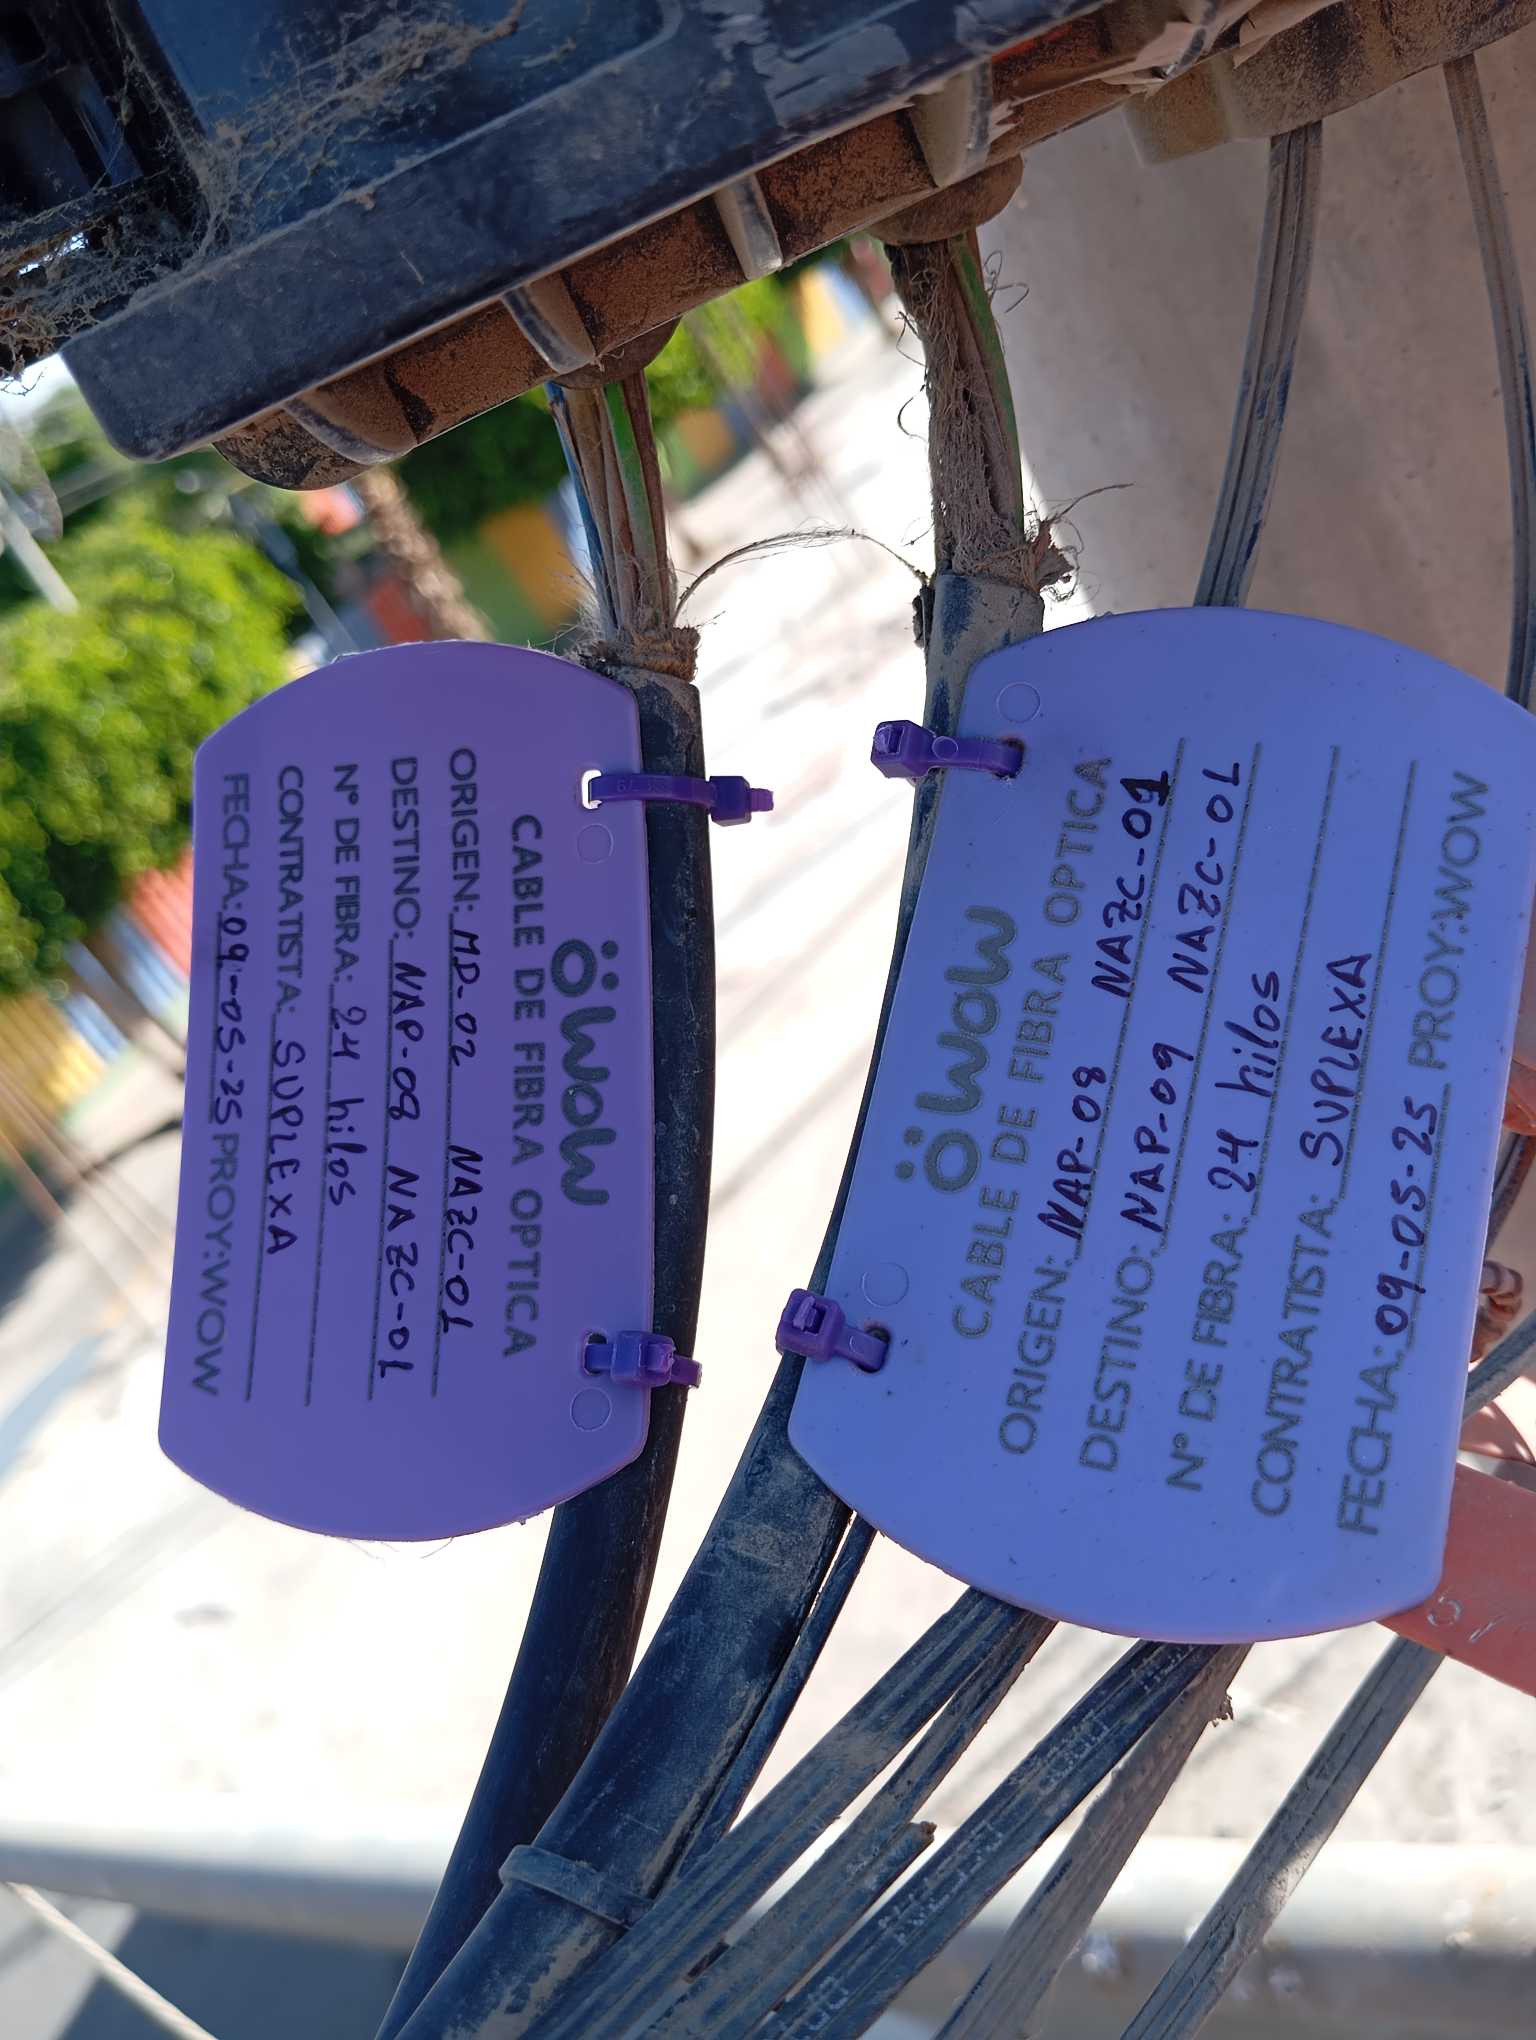 wow
CABLE DE FIBRA OPTICA
ORIGEN: MD-02 NAZC-01
DESTINO: NAP-08 NAZC-01
N° DE FIBRA: 24 hilos
CONTRATISTA: SUPLEXA
FECHA: 09-05-25 PROY:WOW
wow
CABLE DE FIBRA OPTICA
ORIGEN: NAP-08 NAZC-01
DESTINO: NAP-09 NAZC-01
N° DE FIBRA: 24 hilos
CONTRATISTA: SUPLEXA
FECHA: 09-05-25 PROY:WOW